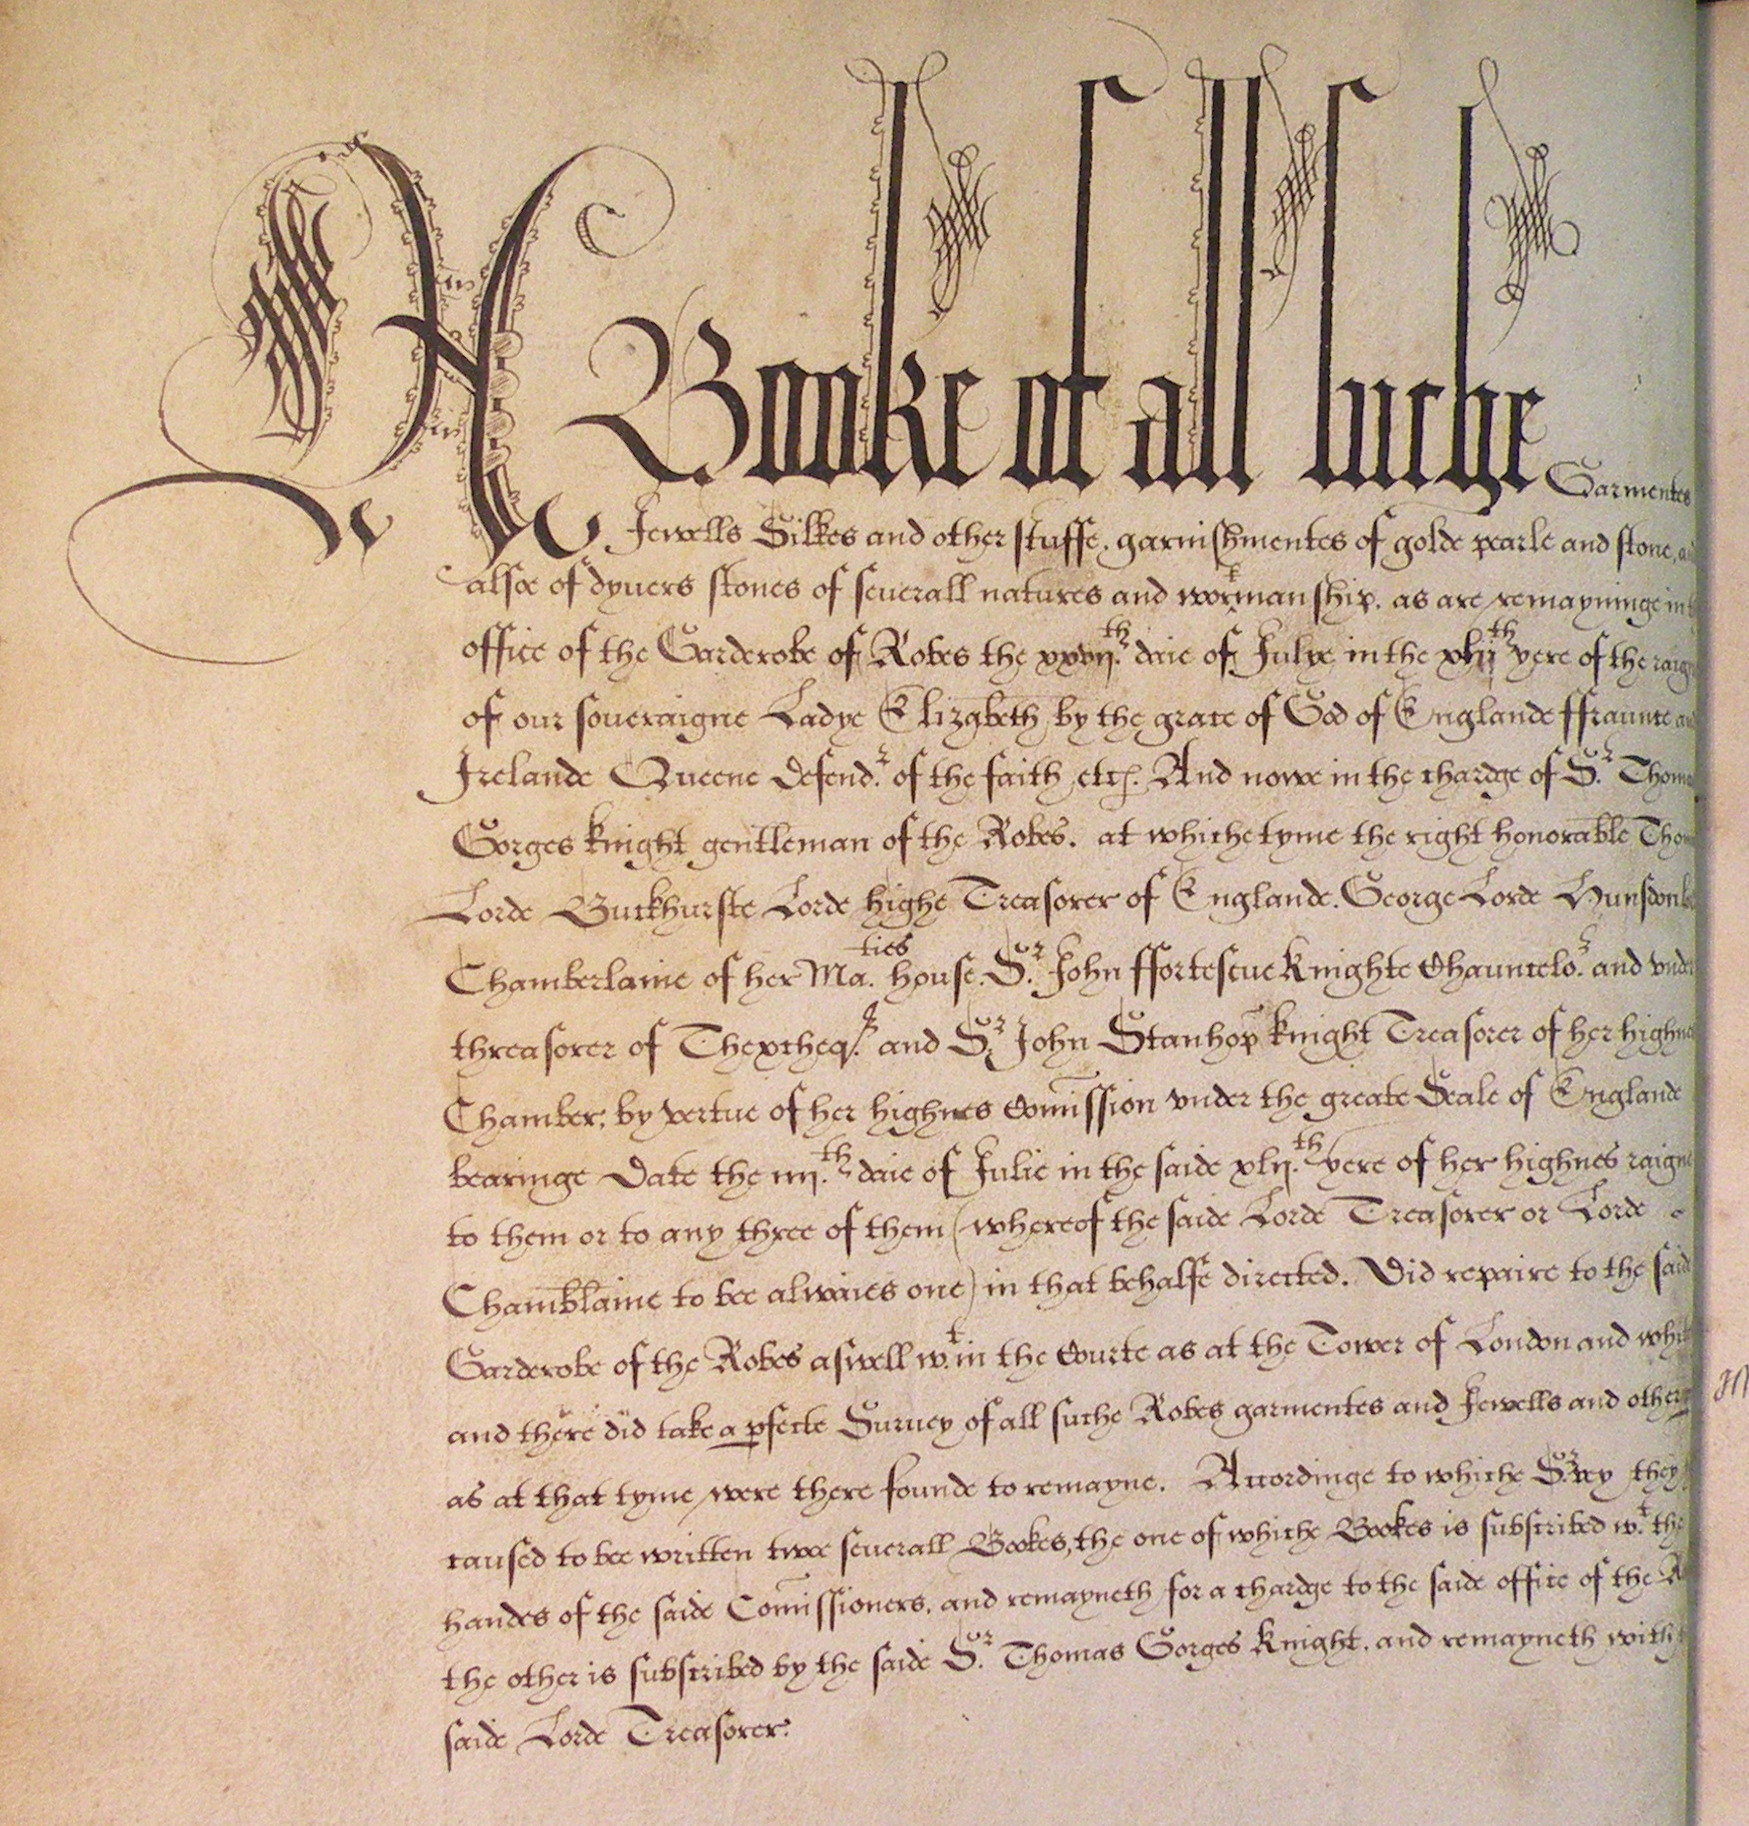 A Booke of all suche Garmentes
Jewells Silkes and other stuffe, garnishmentes of golde pearle and stone,
alsoe of dyuers stones of seuerall natures and workmanship. as are remayninge in
office of the Garderobe of Robes the xxvij.th daie of Julye in the xlij.th yere of the
of our soueraigne Ladye Elizabeth by the grace of God of Englande ffraunce
Irelande Queene defend.r of the faith etc. And nowe in the chardge of S.r
Gorges knight gentleman of the Robes. at whiche tyme the right honorable
Lorde Buckhurste Lorde highe Treasorer of Englande. George Lorde Hunsdon
Chamberlaine of her Ma.ties house. S.r John ffortescue Knighte Chauncelo.r and
threasorer of Thexcheq.r and S.r John Stanhop knight Treasorer of her
Chamber, by vertue of her highnes Comission vnder the greate Seale of Englande
bearinge Date the iiij.th daie of Julie in the saide xlij.th yere of her highnes
to them or to any three of them (whereof the saide Lorde Treasorer or Lorde
Chamblaine to bee alwaies one) in that behalfe directed. Did repaire to the
Garderobe of the Robes aswell w.tin the Courte as at the Tower of London and
and there did take a pfecte Suruey of all suche Robes garmentes and Jewells and
as at that tyme were there founde to remayne. Accordinge to whiche S.rvey they
caused to bee written twoe seuerall Bookes, the one of whiche Bookes is subscribed w.t the
handes of the saide Comissioners, and remayneth for a chardge to the saide office of the
the other is subscribed by the saide S.r Thomas Gorges Knight. and remayneth with
saide Lorde Treasorer.